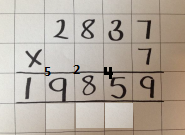 2837
X 7
5 2 4
19859